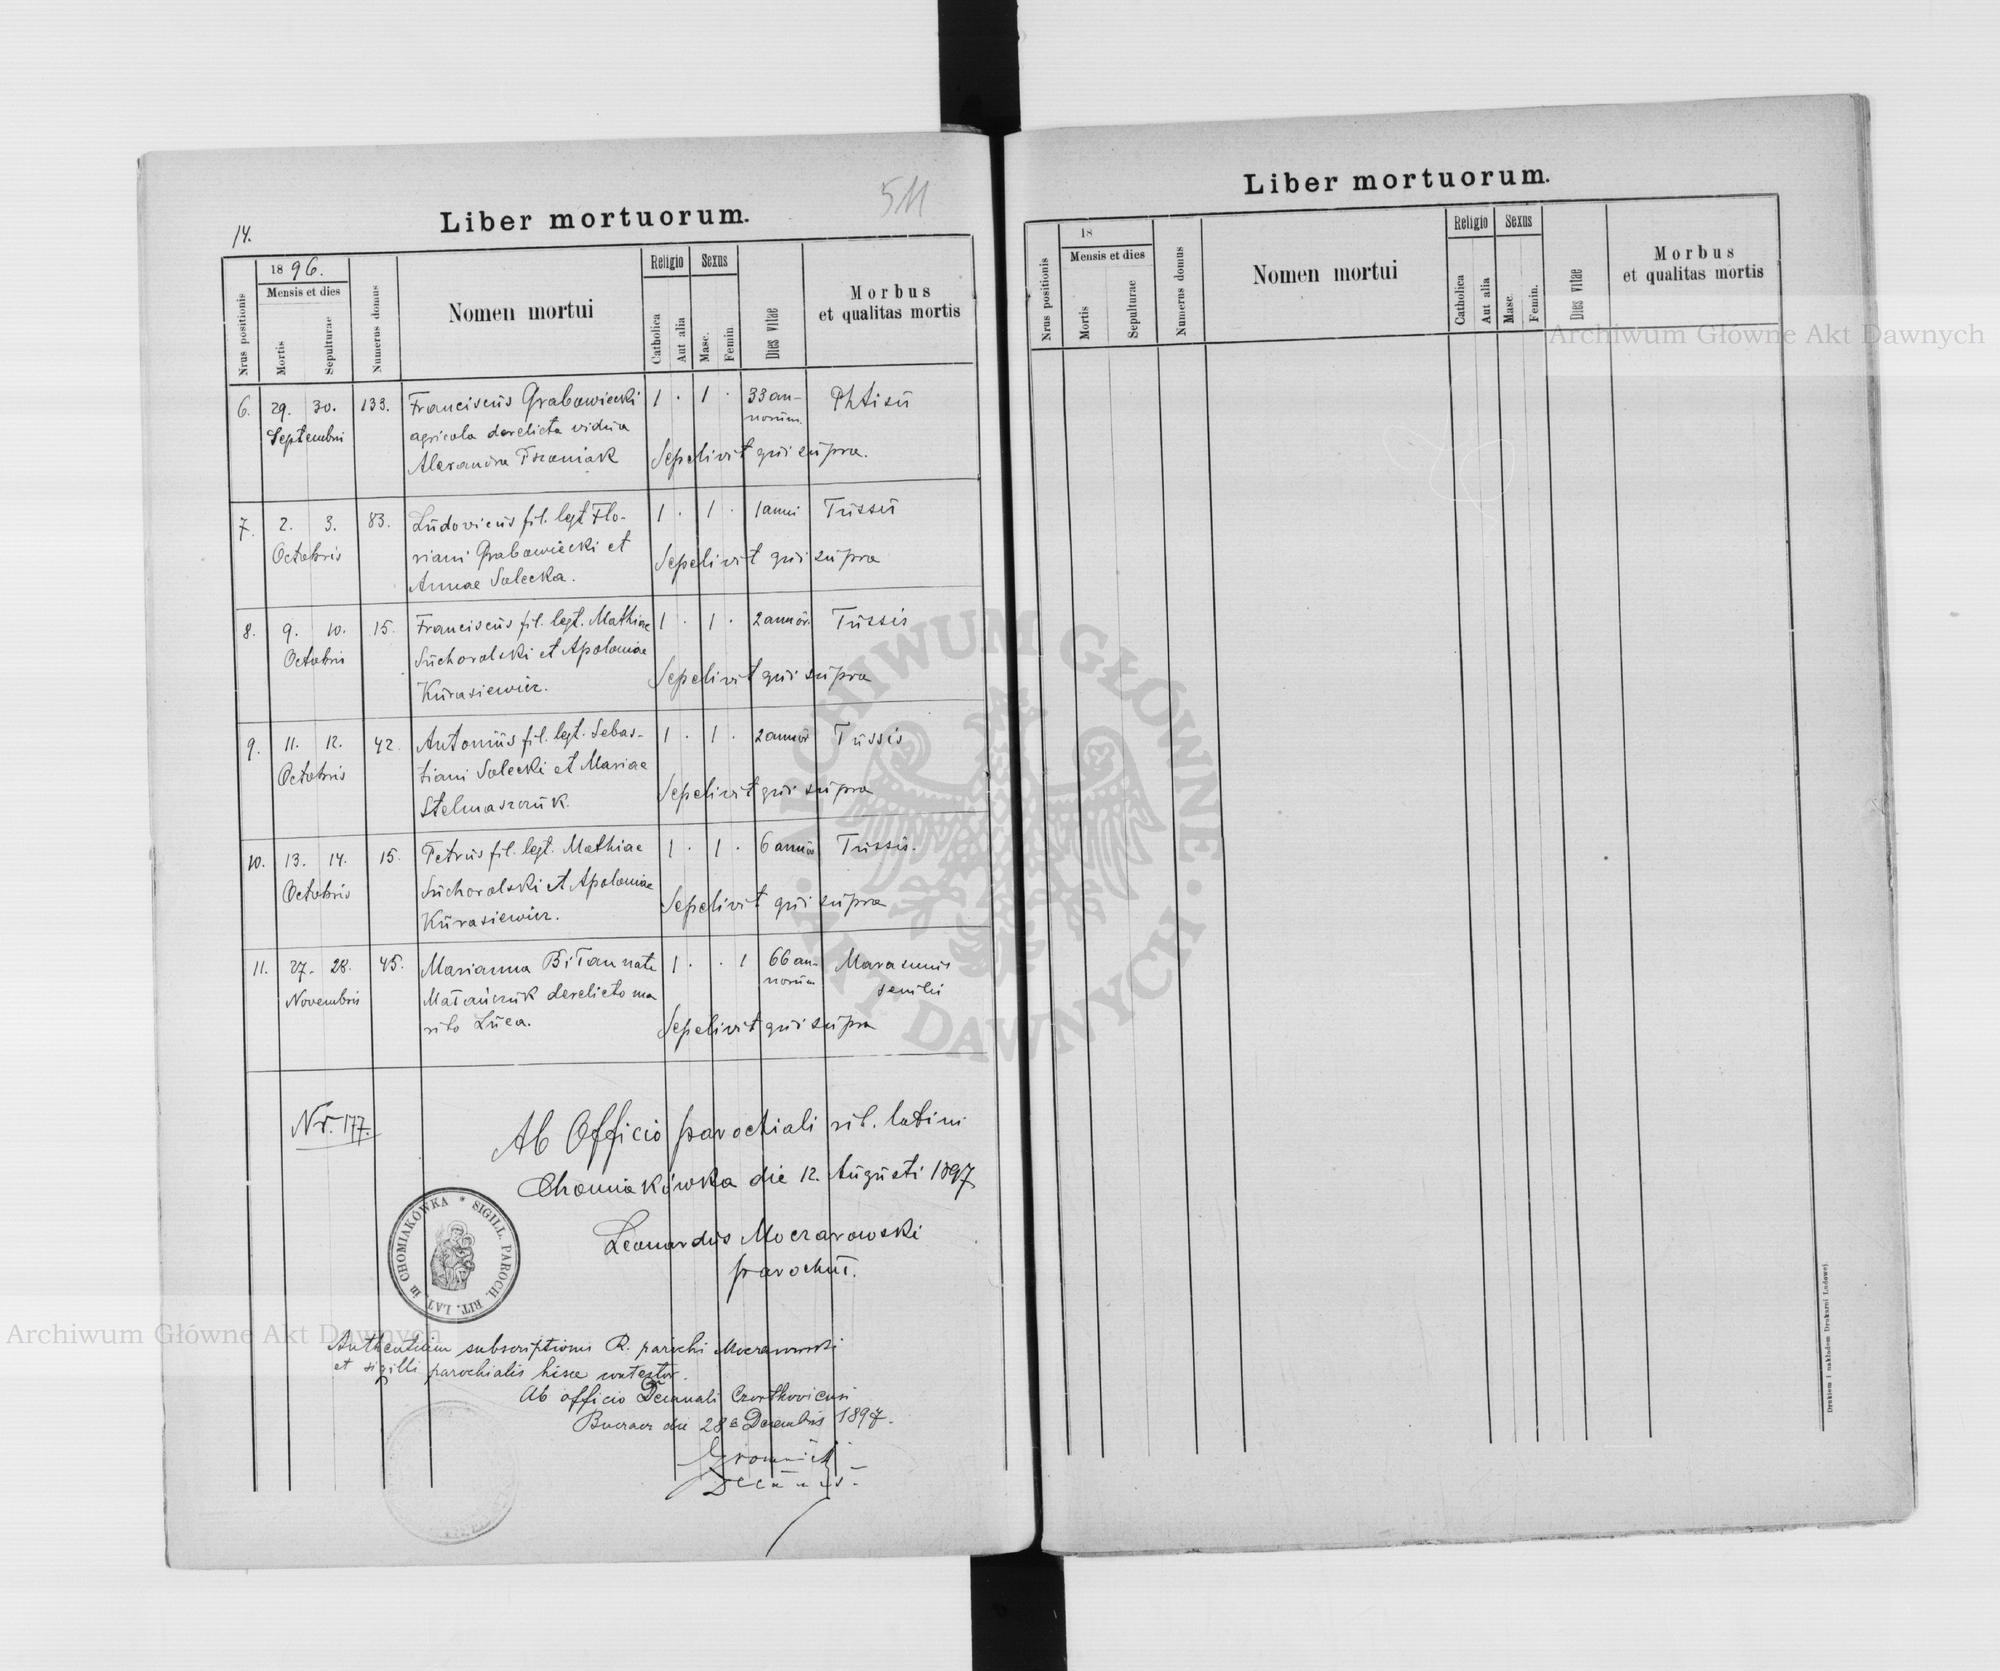 511
14.
Liber mortuorum.
Nrus positionis
1896.
Mensis et dies
Mortis
Sepulturae
Numerus domus
Nomen mortui
Religio
Catholica
Aut alia
Sexus
Masc.
Femin
Dies vitae
Morbus
et qualitas mortis
6. 29. 30. 133. Franciscus Grabowiecki 1 . 1 . 33 an- Phtisis
Septembris agricola derelicta vidua norum.
Alexandra Tszaniak Sepelivit qui supra.
7. 2. 3. 83. Ludovicus fil. legt Flo- 1 . 1 . 1 anni Tussis
Octobris riani Grabowiecki et Sepelivit qui supra
Annae Solecka.
8. 9. 10. 15. Franciscus fil. legt. Mathiae 1 . 1 . 2 annor. Tussis
Octobris Suchorolski et Apoloniae
Kurasiewicz. Sepelivit qui supra
9. 11. 12. 42. Antonius fil. legt. Sebas- 1 . 1 . 2 annor Tussis
Octobris tiani Solecki et Mariae
Stelmaszczuk. Sepelivit qui supra
10. 13. 14. 15. Petrus fil. legt. Mathiae 1 . 1 . 6 annor Tussis.
Octobris Suchorolski et Apoloniae
Kurasiewicz. Sepelivit qui supra
11. 27. 28. 45. Marianna Biłan nata 1 . . 1 66 an- Marasmus
Novembris Małańczuk derelicto ma norum senilis
rito Luca. Sepelivit qui supra
Nr. 177.
Ab Officio parochiali rit. latini
Chomiakówka die 12. Augusti 1897
Leonardus Moczarowski
parochus.
SIGILL. PAROCH. RIT. LAT. in CHOMIAKÓWKA *
subscriptionis R. parochi Moczarowski
et sigilli parochialis hisce contestor.
Ab officio Decanali Czortkoviensi
Buczacz die 28a Decembris 1897.
Gromnicki
Decanus.
Liber mortuorum.
Nrus positionis
18
Mensis et dies
Mortis
Sepulturae
Numerus domus
Nomen mortui
Religio
Catholica
Aut alia
Sexus
Masc.
Femin.
Dies vitae
Morbus
et qualitas mortis
Drukiem i nakładem Drukarni Ludowej.
Archiwum Główne Akt Dawnych
Archiwum Główne Akt Dawnych
ARCHIWUM GŁÓWNE · AKT DAWNYCH ·